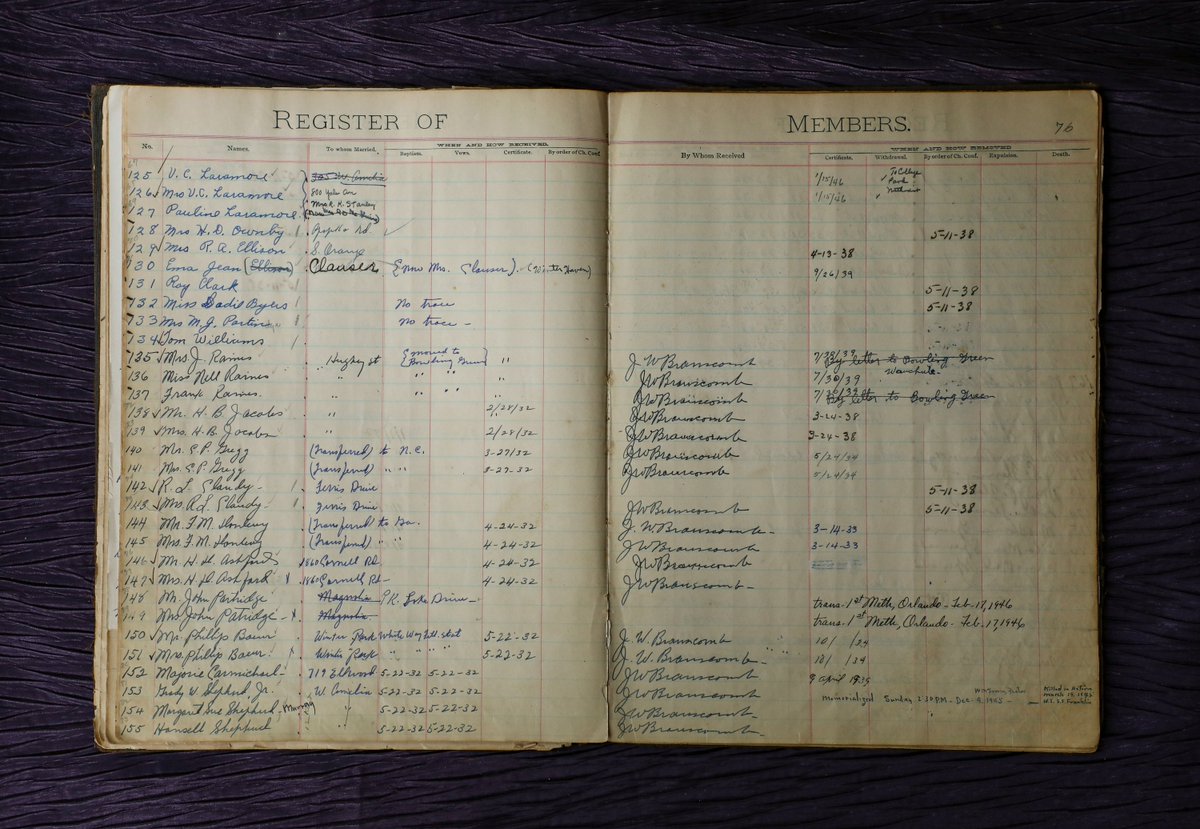 REGISTER OF MEMBERS. 76
WHEN AND HOW RECEIVED. WHEN AND HOW REMOVED
No. Names. To whom Married. Baptism. Vows. Certificate. By order of Ch. Conf. By Whom Received Certificate. Withdrawal. By order of Ch. Conf. Expulsion. Death.
125 V. C. Laramore 305 W. Amelia 1/15/46 To College Park
126 Mrs V.C. Laramore 800 Yale Ave 1/15/46
127 Pauline Laramore Mrs R. K. Stanley
128 Mrs H. D. Ownby Rd 5-11-38
129 Mrs R. A. Ellison S. Orange 4-13-38
130 Ema Jean (Ellison) Clauser (now Mrs. Clauser) (Winter Haven) 9/26/39
131 Roy Clark 5-11-38
132 Miss Sadie Byers No trace 5-11-38
133 Mrs M. J. No trace -
134 Tom Williams
135 Mrs J. Raines Hughey st (moved to Bowling Green) " J. W Branscomb 7/28/39 By letter to Bowling Green
136 Miss Nell Raines " " " " JW Branscomb 7/30/39 Wauchula
137 Frank Raines. " " JW Branscomb By letter to Bowling Green
138 Mr. H. B. Jacobs " 2/28/32 JW Branscomb 3-24-38
139 Mrs. H. B Jacobs " 2/28/32 JW Branscomb 3-24-38
140 Mr. E. P. Gregg (Transferred) to N.C. 3-27/32 JW Branscomb 5/24/34
141 Mrs. E. P. Gregg (Transferred) " " 3-27-32 JW Branscomb 5/24/34
142 R. L. Slandy - Ferris Drive 5-11-38
143 Mrs R L Slandy - Ferris Drive JW Branscomb 5-11-38
144 Mr. F. M. (Transferred) to Ga. 4-24-32 J. W Branscomb - 3-14-33
145 Mrs. F. M. (Transferred) " " 4-24-32 JW Branscomb 3-14-33
146 Mr. H. H. Ashford 1860 Cornell Rd. 4-24-32 JW Branscomb
147 Mrs. H. H. Ashford 1860 Cornell Rd - 4-24-32 JW Branscomb -
148 Mr. John Partridge Magnolia Lake Drive - trans. 1st Meth, Orlando - Feb. 17, 1946
149 Mrs John Patridge Magnolia trans. 1st Meth, Orlando - Feb. 17, 1946
150 Mr Phillip Baur Winter Park 5-22-32 J. W. Branscomb 10/ /34
151 Mrs. Philip Baur Winter Park " " " " 5-22-32 J. W. Branscomb - 10/ /34
152 Marjorie Carmichael - 719 Elkwood 5-22-32 5-22-32 JW Branscomb 9 April 1935
153 Grady W. Shepherd, Jr. W. Amelia 5-22-32 5-22-32 JW Branscomb Memorialized Sunday 2:30 P.M. - Dec. 9, 1945 - Killed in Action March 19, 1945 U.S.S. Franklin
154 Margaret Sue Shepherd - Murray " 5-22-32 5-22-32 JW Branscomb -
155 Hansell Shepherd " 5-22-32 5-22-32 JW Branscomb -